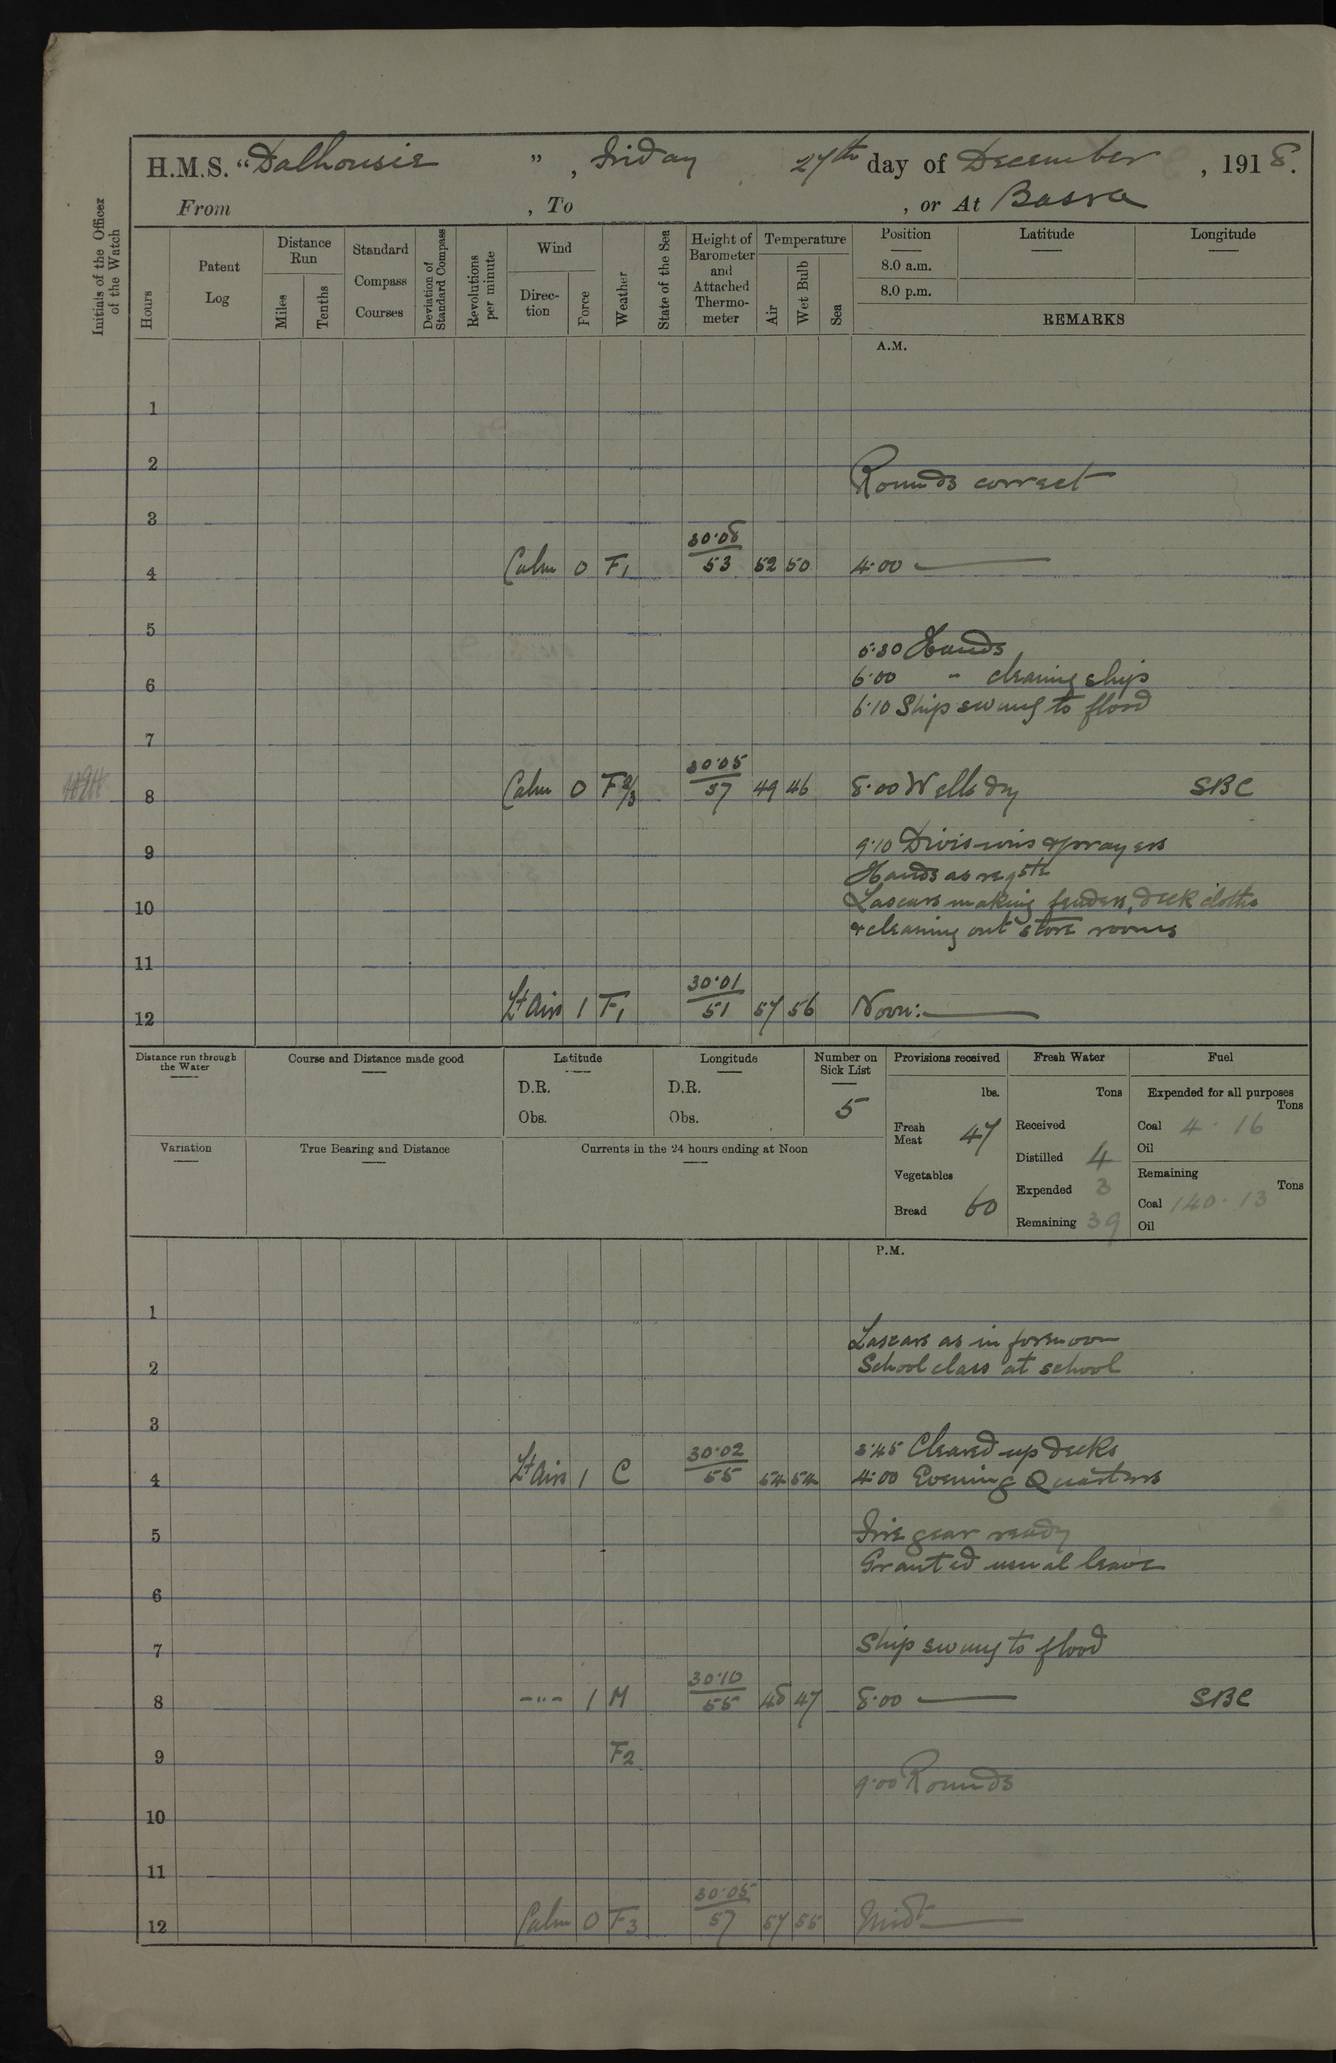 H.M.S. "Dalhousie", Friday 27th day of December, 1918.
From , To , or At Basra
Initials of the Officer of the Watch
Hours
Patent Log
Distance Run
Miles
Tenths
Standard Compass Courses
Deviation of Standard Compass
Revolutions per minute
Wind
Direction
Force
Weather
State of the Sea
Height of Barometer and Attached Thermometer
Temperature
Air
Wet Bulb
Sea
Position
8.0 a.m.
8.0 p.m.
Latitude
Longitude
REMARKS
A.M.
1
2
Rounds correct
3
4 Calm 0 F1 30.08/53 52 50 4.00
5
5.30 Hands
6 6.00 " cleaning ship
6.10 Ship swung to flood
7
8 Calm 0 F2/3 30.05/57 49 46 8.00 Wells dry SBC
9 9.10 Divisions & prayers
Hands as reqste
10 Lascars making fenders, deck cloths
& cleaning out store rooms
11
12 Lt Airs 1 F1 30.01/51 57 56 Noon:
Distance run through the Water
Course and Distance made good
Latitude
D.R.
Obs.
Longitude
D.R.
Obs.
Number on Sick List
5
Provisions received
lbs.
Fresh Meat 47
Vegetables
Bread 60
Fresh Water
Tons
Received
Distilled 4
Expended 3
Remaining 39
Fuel
Expended for all purposes
Tons
Coal 4.16
Oil
Remaining
Tons
Coal 140.13
Oil
Variation
True Bearing and Distance
Currents in the 24 hours ending at Noon
P.M.
1
Lascars as in forenoon
2 School class at school
3
3.45 Cleared up decks
4 Lt Airs 1 C 30.02/55 54 54 4.00 Evening Quarters
5 Fire gear ready
Granted usual leave
6
7 Ship swung to flood
8 -"- 1 M 30.10/55 48 47 8.00 SBC
9 F2
9.00 Rounds
10
11
12 Calm 0 F3 30.05/57 57 55 Midt